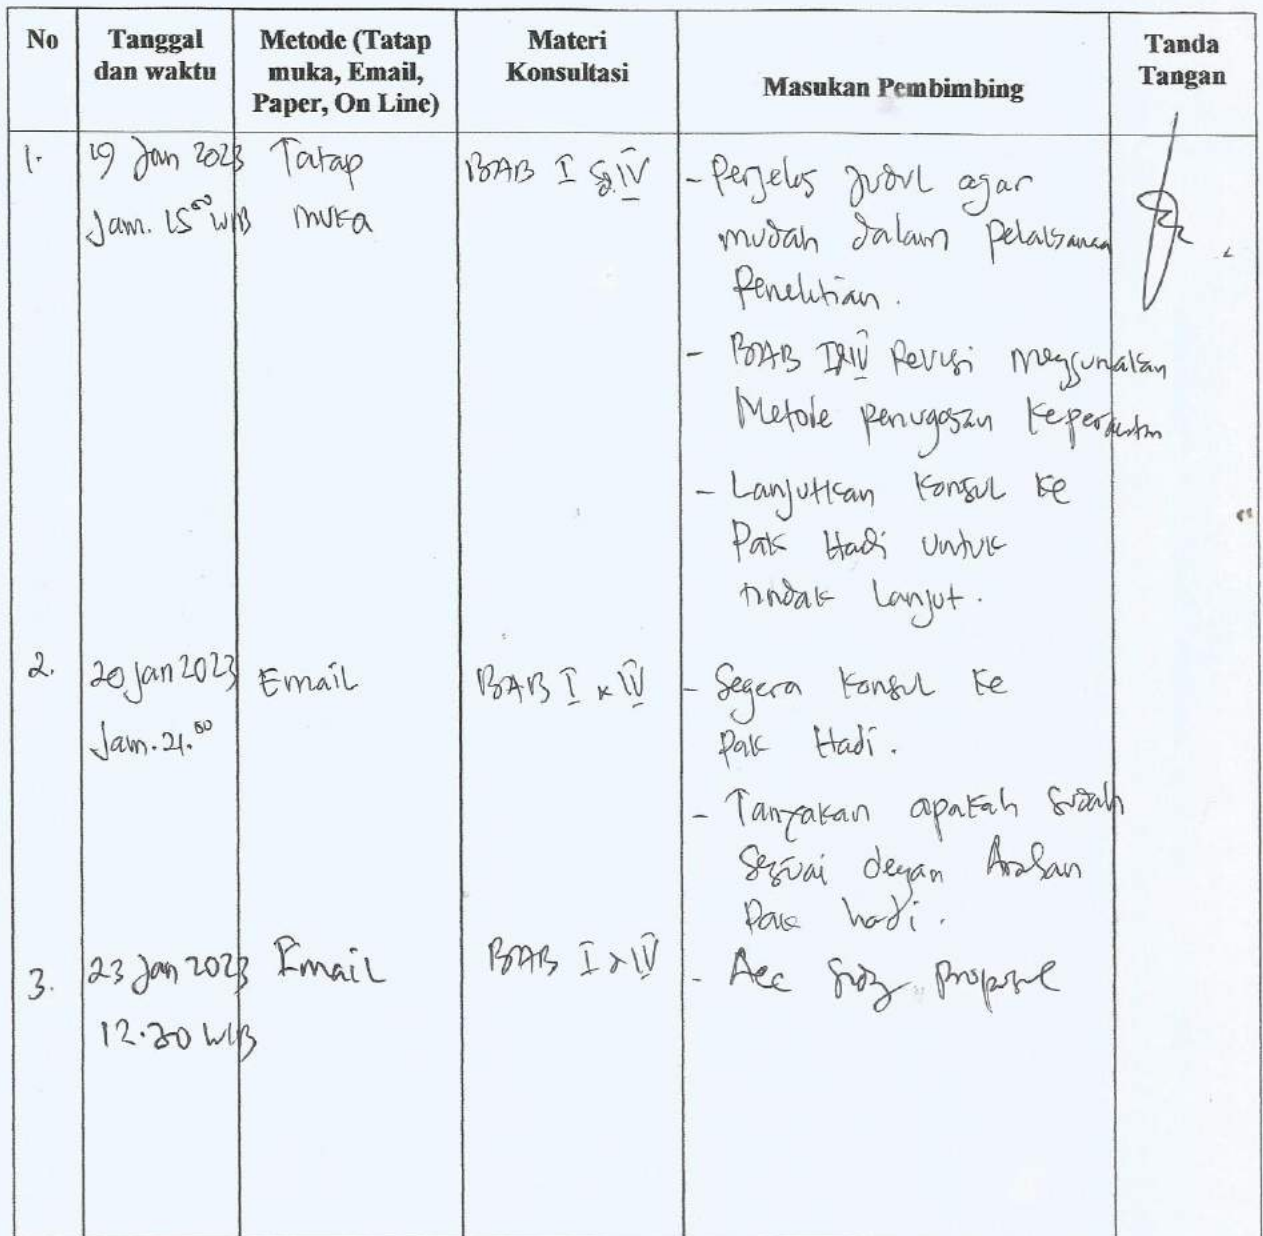 No Tanggal dan waktu Metode (Tatap muka, Email, Paper, On Line) Materi Konsultasi Masukan Pembimbing Tanda Tangan
1. 19 Jan 2023 Tatap BAB I sd IV - Perjelas judul agar
Jam. 15⁰⁰ WIB muka mudah dalam Pelaksanaan
Penelitian.
- BAB I & IV Revisi Menggunakan
Metode penugasan Keperawatan
- Lanjutkan Konsul ke
Pak Hadi untuk
tindak Lanjut.
2. 20 Jan 2023 Email BAB I & IV - Segera Konsul ke
Jam. 21.⁰⁰ Pak Hadi.
- Tanyakan apakah sudah
Sesuai dengan Arahan
Pak hadi.
3. 23 Jan 2023 Email BAB I & IV - Acc Proposal
WIB